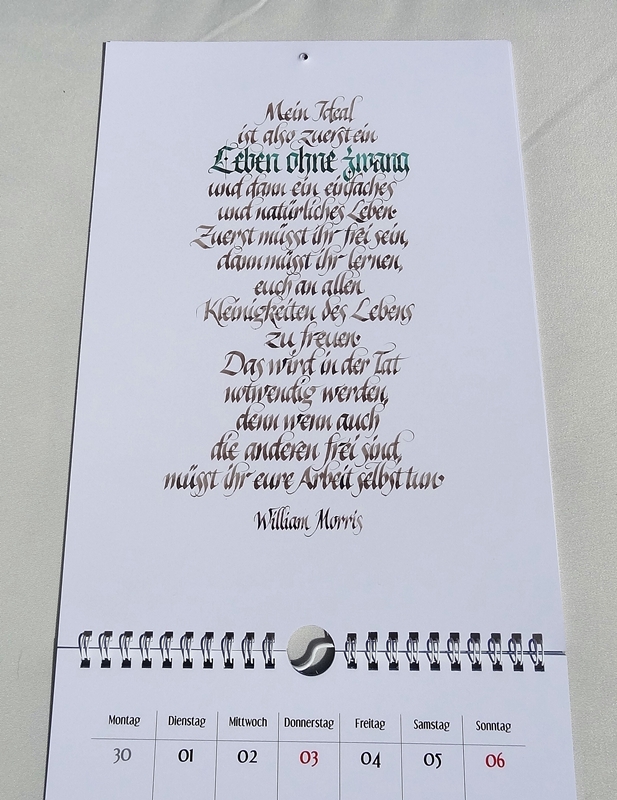 Mein Ideal
ist also zuerst ein
Leben ohne Zwang
und dann ein einfaches
und natürliches Leben.
Zuerst müsst ihr frei sein,
dann müsst ihr lernen,
euch an allen
Kleinigkeiten des Lebens
zu freuen.
Das wird in der Tat
notwendig werden,
denn wenn auch
die anderen frei sind,
müsst ihr eure Arbeit selbst tun.
William Morris
Montag Dienstag Mittwoch Donnerstag Freitag Samstag Sonntag
30 01 02 03 04 05 06